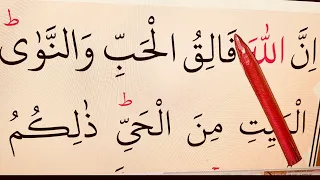 اِنَّ اللّٰهَ فَالِقُ الْحَبِّ وَالنَّوٰى ؕ
الْمَيِّتِ مِنَ الْحَيِّ ؕ ذٰلِكُمُ